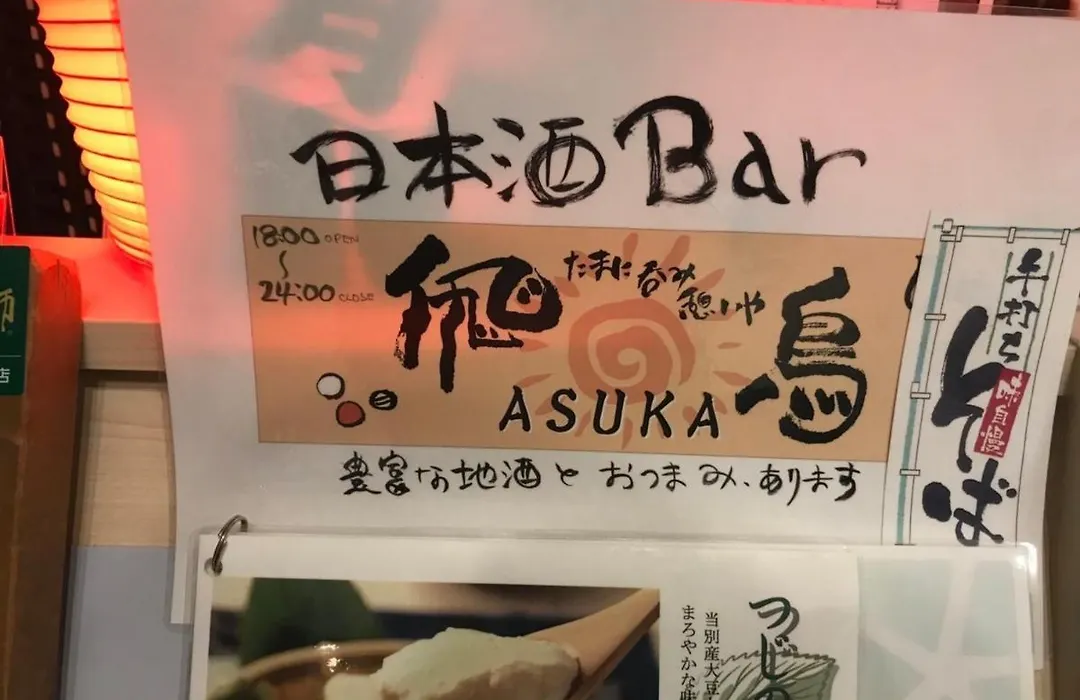 日本酒Bar
18:00 OPEN
〜
24:00 CLOSE
飛鳥
たまに呑み
憩いや
ASUKA
豊富な地酒と おつまみ、あります
手打ち
そば
味自慢
師
店
つじの
当別産大豆
まろやかな味